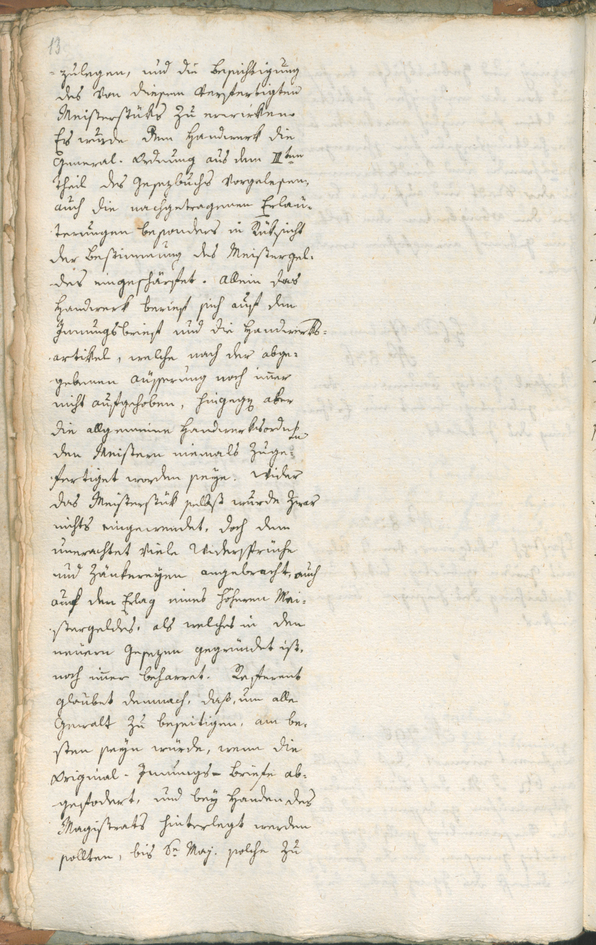 13
-zulegen, und die Besichtigung
des von diesem verfertigten
Meisterstüks zu
Es wurde dem Handwerk die
General-Ordnung aus dem IIten
Theil des Gesezbuchs vorgelesen,
auch die nachgetragenen Erläu-
terungen besonders in Rüksicht
der Bestimmung des Meistergel-
des eingeschärfet. Allein das
Handwerk berief sich auf den
Innungsbrief und die Handwerks-
artikel, welche nach der abge-
gebenen äusserung noch immer
nicht aufgehoben, hingegen aber
die allgemeine Handwerksordnung
den Meistern niemals zuge-
fertiget worden seye. Wider
das Meisterstük selbst wurde zwar
nichts eingewendet, doch dem
unerachtet viele Widersprüche
und Zänkereyen angebracht, auch
auf den Erlag eines höheren Mei-
stergeldes, als welches in den
neuern Gesezen gegründet ist,
noch immer beharret. Referent
glaubet demnach, daß, um alle
Gewalt zu beseitigen, am be-
sten seyn würde, wenn die
Original-Innungs-Briefe ab-
gefodert, und bey Handen des
Magistrats hinterlegt werden
sollten, bis Se Maj. solche zu